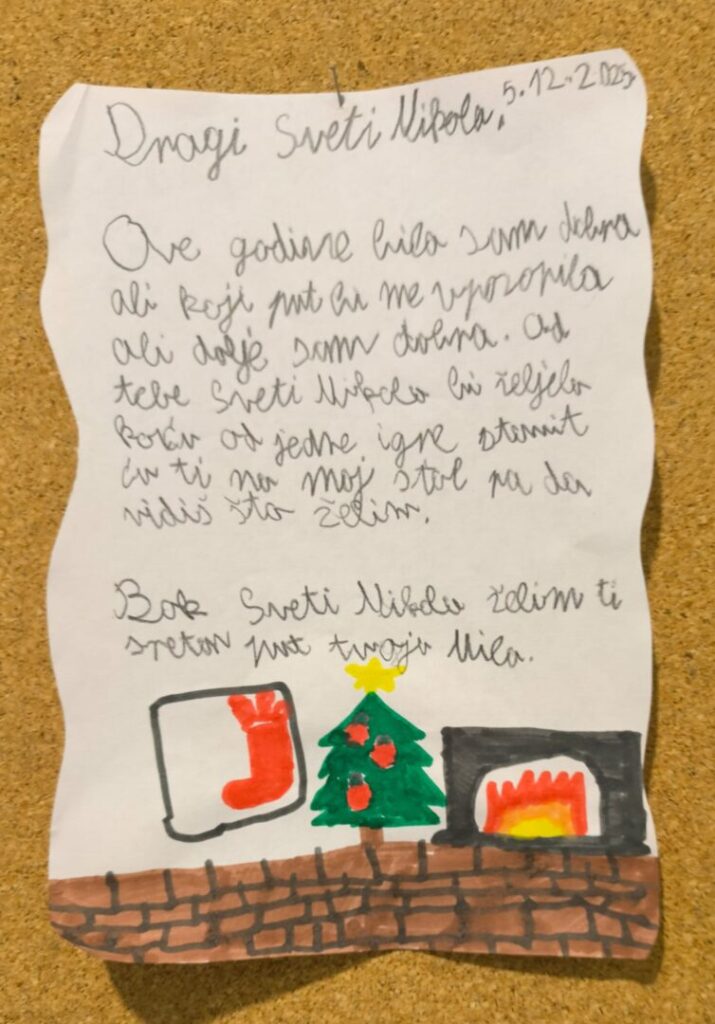 Dragi Sveti Nikola, 5.12.2025.
Ove godine bila sam dobra
ali koji put bi me upozorila
ali dolje sam dobra. Od
tebe Sveti Nikola bi željela
kocku od jedne igre stavit
ću ti na moj stol pa da
vidiš što želim.
Bok Sveti Nikola želim ti
sretan put tvoja Mila.